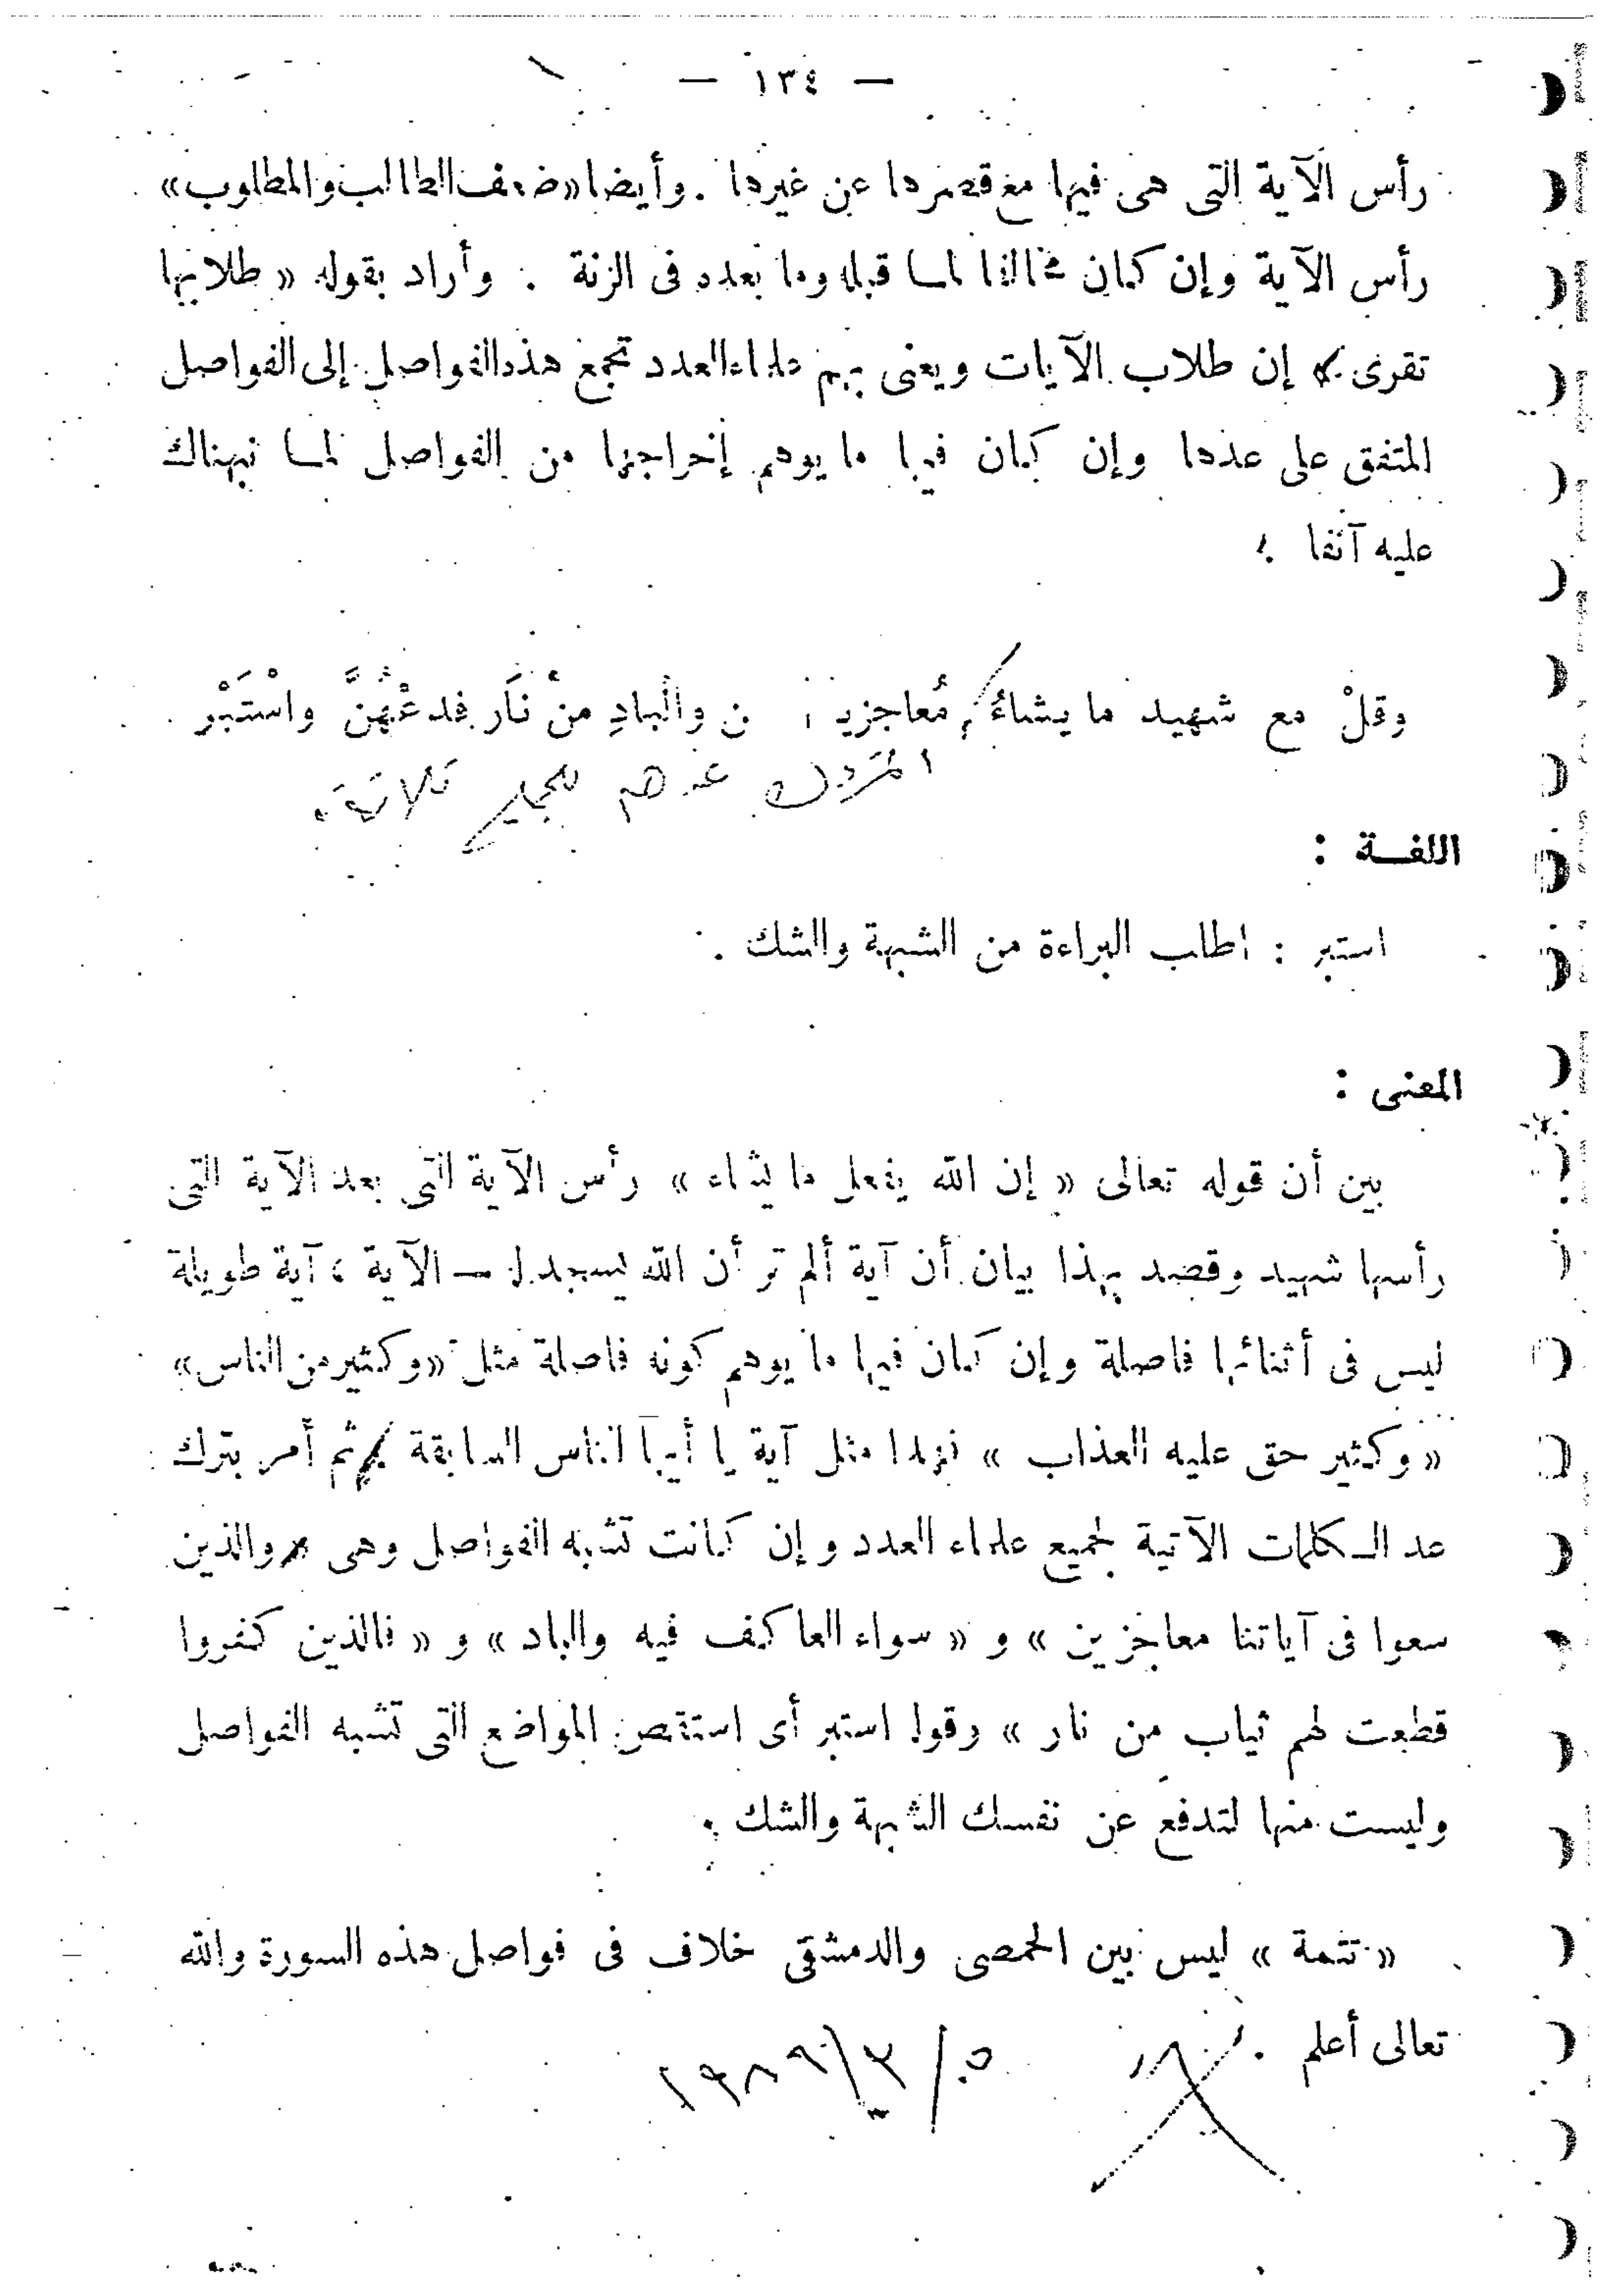 — ١٣٤ —
رأس الآية التى هى فيها مع قصرها عن غيرها . وأيضا «ضعف الطالب والمطلوب»
رأس الآية وإن كان مخالفا لما قبله وما بعده فى الزنة . وأراد بقوله « طلابها
تقرى » إن طلاب الآيات ويعنى بهم علماء العدد تجمع هذه الفواصل إلى الفواصل
المتفق على عدها وإن كان فيها ما يوهم إخراجها من الفواصل لما نبهناك
عليه آنفا .
وقلْ مع شهيد ما يشاءُ مُعاجزين والبادِ منْ نَار فدعْهُنَّ واسْتَبْر
المتروك عدهم للجميع ثلاثة .
اللغة :
استبر : اطلب البراءة من الشبهة والشك .
المعنى :
بين أن قوله تعالى « إن الله يفعل ما يشاء » رأس الآية التى بعد الآية التى
رأسها شهيد وقصد بهذا بيان أن آية ألم تر أن الله يسجد له — الآية ، آية طويلة
ليس فى أثنائها فاصلة وإن كان فيها ما يوهم كونه فاصلة مثل «وكثير من الناس»
« وكثير حق عليه العذاب » فهذا مثل آية يا أيها الناس السابقة ثم أمر بترك
عد الكلمات الآتية لجميع علماء العدد وإن كانت تشبه الفواصل وهى « والذين
سعوا فى آياتنا معاجزين » و « سواء العاكف فيه والباد » و « فالذين كفروا
قطعت لهم ثياب من نار » وقوله استبر أى استقص المواضع التى تشبه الفواصل
وليست منها لتدفع عن نفسك الشبهة والشك .
« تتمة » ليس بين الحمصى والدمشقى خلاف فى فواصل هذه السورة والله
تعالى أعلم .
٥ / ٣ / ١٩٨٩